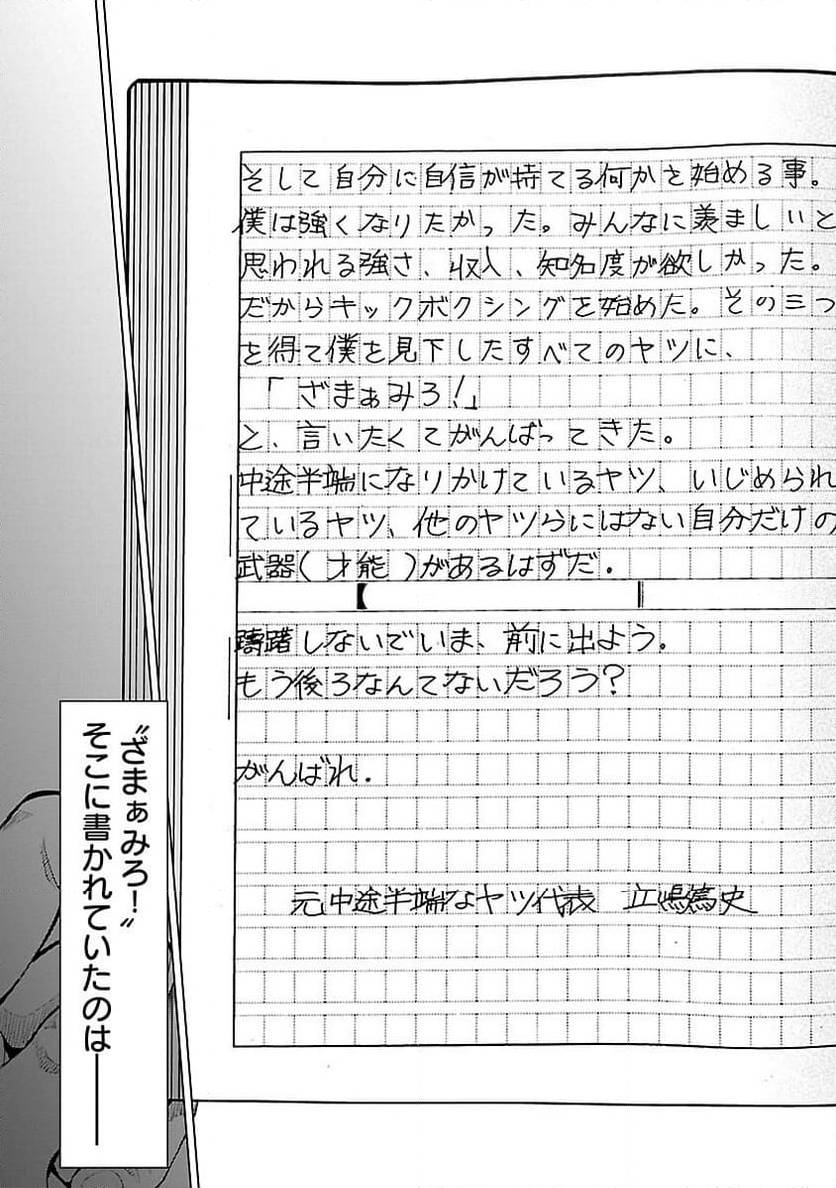 そして自分に自信が持てる何かを始める事。
僕は強くなりたかった。みんなに羨ましいと
思われる強さ、収入、知名度が欲しかった。
だからキックボクシングを始めた。その三つ
を得て僕を見下したすべてのヤツに、
「ざまぁみろ!」
と、言いたくてがんばってきた。
中途半端になりかけているヤツ、いじめられ
ているヤツ、他のヤツらにはない自分だけの
武器(才能)があるはずだ.
躊躇しないでいま、前に出よう。
もう後ろなんてないだろう?
がんばれ.
元中途半端なヤツ代表 立嶋篤史
〝ざまぁみろ!〟
そこに書かれていたのは――